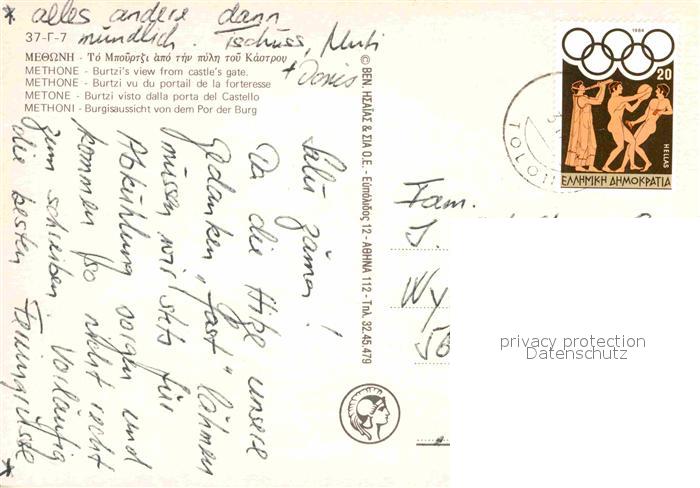 * alles andere dann
mündlich. Tschüss, Muti
+ Doris
37-Γ-7
ΜΕΘΩΝΗ - Τό Μπούρτζι ἀπό τήν πύλη τοῦ Κάστρου
METHONE - Burtzi's view from castle's gate.
METHONE - Burtzi vu du portail de la forteresse
METONE - Burtzi visto dalla porta del Castello
METHONI - Burgisaussicht von dem Por der Burg
© ΒΕΝ. ΗΣΑΪΑΣ & ΣΙΑ Ο.Ε. - Εὐπόλιδος 12 - ΑΘΗΝΑ 112 - Τηλ. 32.45.479
Salü zämen!
Da die Hitze unsere
Gedanken "fast" lähmen
müssen wir stets für
Abkühlung sorgen und
kommen so nicht recht
zum schreiben. Vorläufig
die besten Feriengrüsse
*
1984
20
HELLAS
ΕΛΛΗΝΙΚΗ ΔΗΜΟΚΡΑΤΙΑ
TOLO
Fam.
J.
Wy
56
privacy protection
Datenschutz